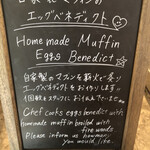 エッグベネディクト
Home made Muffin
Eggs Benedict
自家製のマフィンを薪火で香り
エッグベネディクトをお作りします!!
Chef cooks eggs benedict with
homemade muffin broiled with
fire woods
Please inform us how many
you would like.